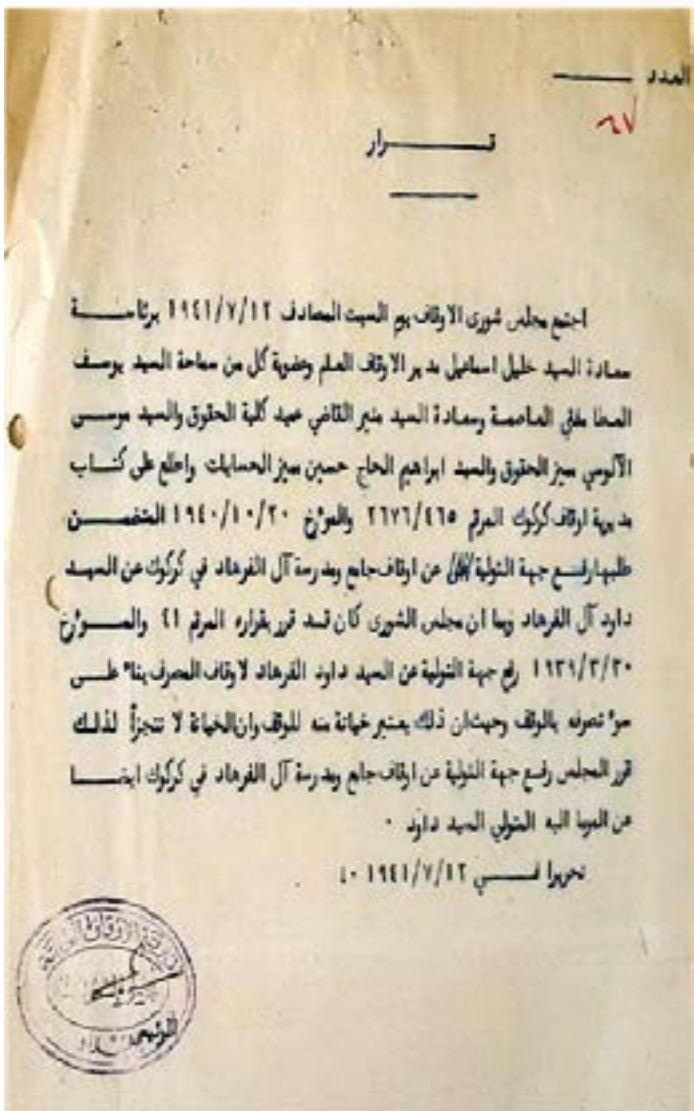 العدد
٦٧
قـــــرار
اجتمع مجلس شورى الاوقاف يوم السبت المصادف ١٩٤١/٧/١٢ برئاســــة
سعادة السيد خليل اسماعيل مدير الاوقاف العام وعضوية كل من سماحة السيد يوسف
العطا مفتي العاصمة وسعادة السيد منير القاضي عميد كلية الحقوق والسيد موســى
الآلوسي مميز الحقوق والسيد ابراهيم الحاج حسين مميز الحسابات واطلع على كتــاب
مديرية اوقاف كركوك المرقم ٢٦٧٦/٤٦٥ والمؤرخ ١٩٤٠/١٠/٢٠ المتضمــــن
طلبها رفــع جهة التولية عن اوقاف جامع ومدرسة آل الفرهاد في كركوك عن السيــد
داود آل الفرهاد وبما ان مجلس الشورى كان قــد قرر بقراره المرقم ٤١ والمـــؤرخ
١٩٣٩/٣/٢٠ رفع جهة التولية عن السيد داود الفرهاد لاوقاف المصرف بناء علــى
سوء تصرفه بالوقف وحيث ان ذلك يعتبر خيانة منه للوقف وان الخيانة لا تتجزأ لذلــك
قرر المجلس رفــع جهة التولية عن اوقاف جامع ومدرسة آل الفرهاد في كركوك ايضــا
عن الموما اليه المتولي السيد داود ٠
تحريرا فــــي ١٩٤١/٧/١٢